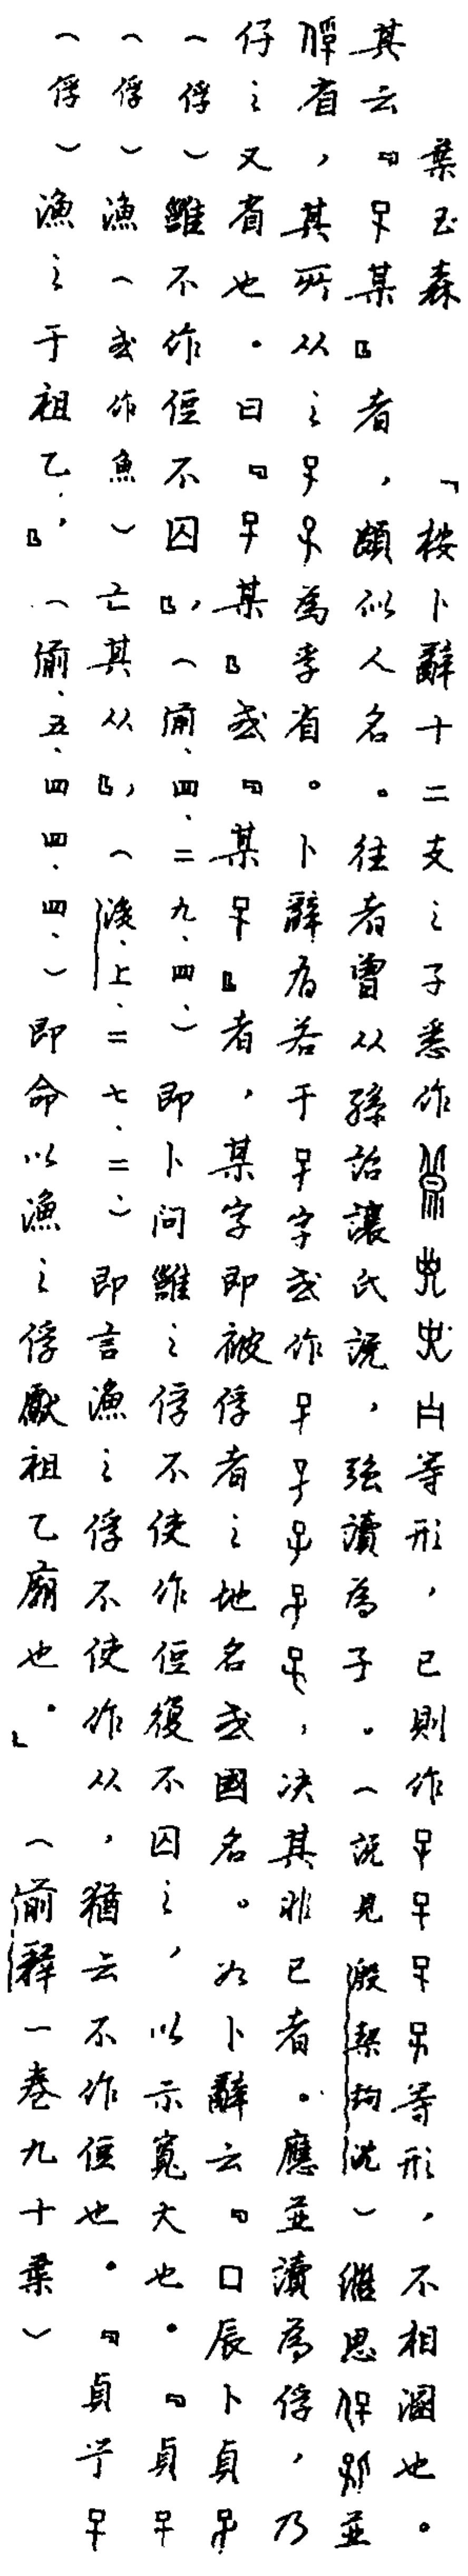 葉玉森　「桉卜辭十二支之子悉作等形，巳則作等形，不相溷也。
其云『某』者，頗似人名。往者曾从孫詒讓氏説，強讀為子。（説見殷契拘沈）繼思並
省，其所从之為孚省。卜辭有若干字或作，決其非巳者。應並讀為俘，乃
仔之又省也。曰『某』或『某』者，某字即被俘者之地名或國名。如卜辭云『口辰卜貞
（俘）雝不作𢓊不囚』，（前、四、二九、四、）即卜問雝之俘不使作𢓊復不囚之，以示寬大也。『貞
（俘）漁（或作魚）亡其从』，（後、上、二七、二）即言漁之俘不使作从，猶云不作𢓊也。『貞乎
（俘）漁之于祖乙』，（前、五、四四、四、）即命以漁之俘獻祖乙廟也。」（前釋一卷九十葉）